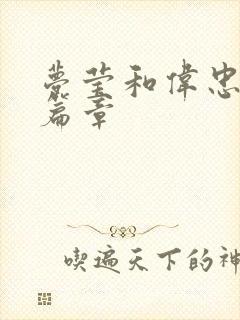 麗莹和偉忠
篇章
喫遍天下的神